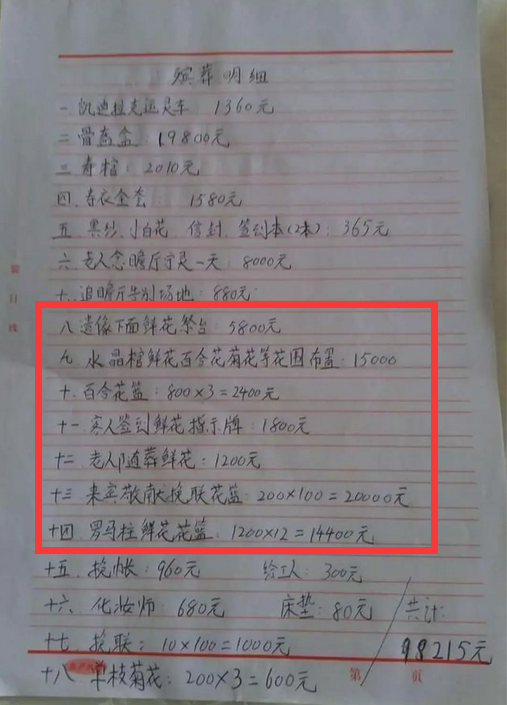 殡葬明细
一.凯迪拉克运灵车 1360元
二.骨灰盒 19800元
三.寿棺:2010元
四.寿衣全套 1580元
五.黑纱、小白花、信封、签到本(2本):365元
六.老人念瞻厅守灵一天:8000元
七.追瞻厅告别场地:880元
八.遗像下面鲜花祭台:5800元
九.水晶棺鲜花百合花菊花等花围布置:15000
十.百合花篮:800×3=2400元
十一.来人签到鲜花指示牌:1800元
十二.老人随葬鲜花:1200元
十三.来宾敬献挽联花篮:200×100=20000元
十四.罗马柱鲜花花篮:1200×12=14400元
十五.挽帐:960元 给工人:300元
十六.化妆师:680元 床垫:80元 共计:
十七.挽联:10×100=1000元 98215元
十八.单枝菊花:200×3=600元 第 页